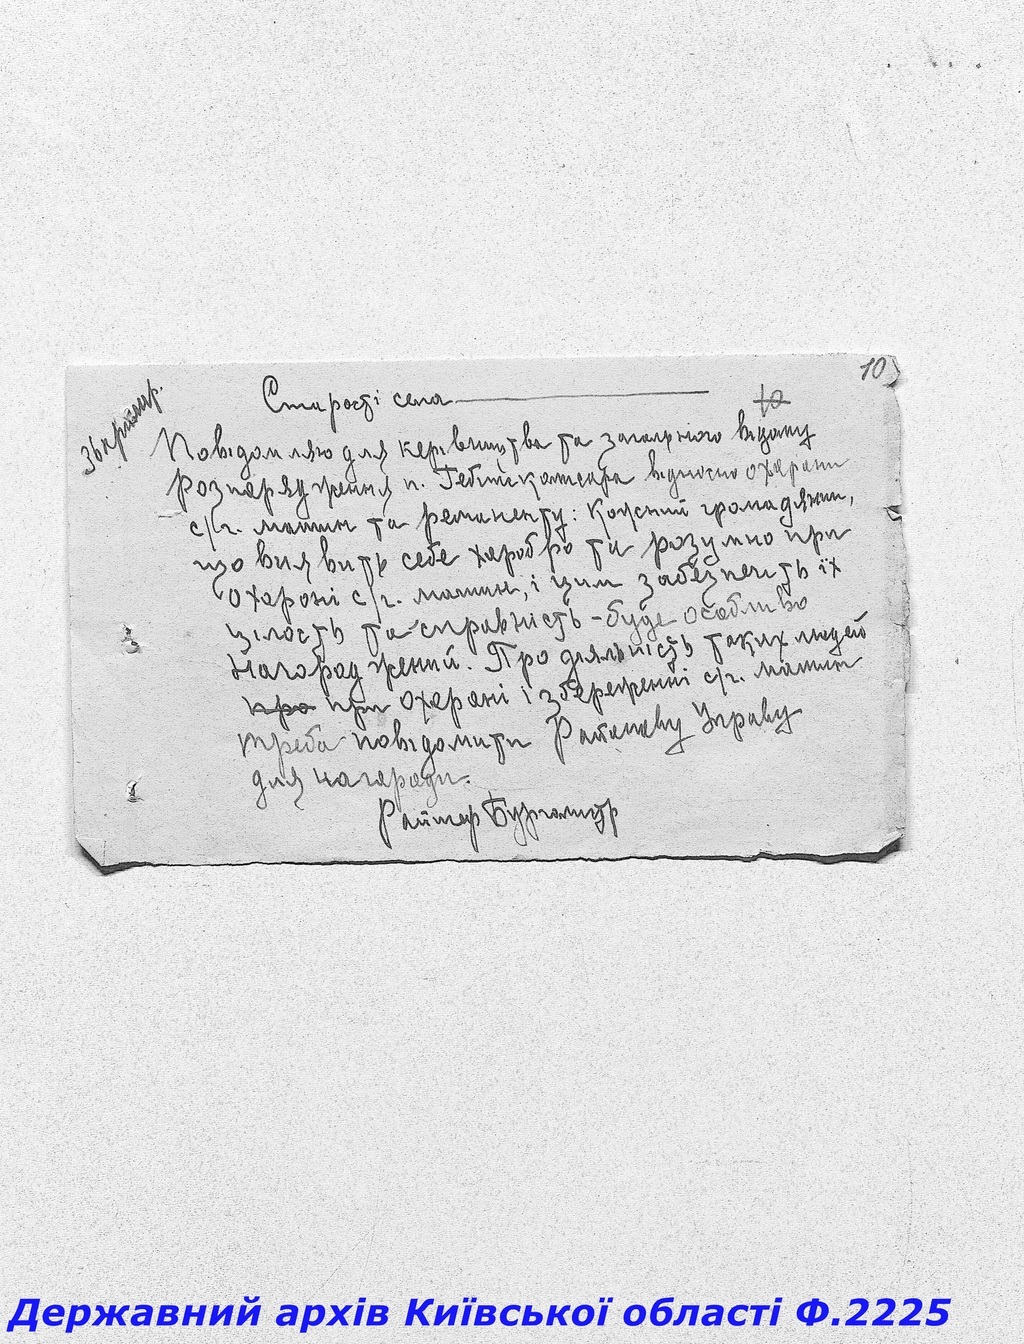 10
10
36 прим.
Старості села
Повідомляю для керівництва та загального відому
розпорядження п. Гебітскомісара відносно охорони
с/г. машин та реманенту: Кожний громадянин,
що виявить себе хоробро та розумно при
охороні с/г. машин, і цим забезпечить їх
цілость та справність - буде особливо
нагороджений. Про діяльність таких людей
про при охороні і збереженні с/г. машин
треба повідомити Районову Управу
для нагороди.
Райшер Бургомістр
Державний архів Київської області Ф.2225